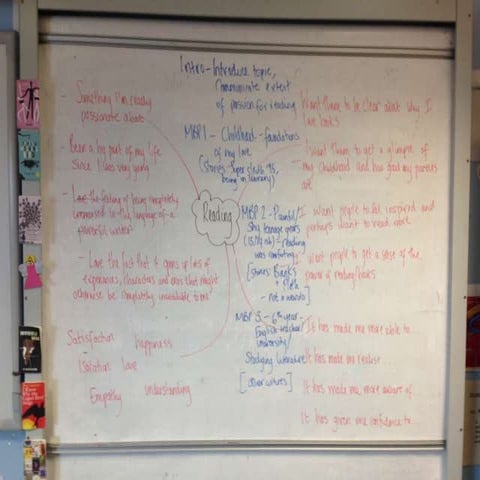 Intro - Introduce topic,
communicate extent
of passion for reading
- Something I'm really
passionate about
- Been a big part of my life
since I was very young
- Love the feeling of being completely
immersed in the language of a
powerful writer
- Love the fact that it opens up lots of
experiences, characters and eras that might
otherwise be completely unavailable to me
Satisfaction happiness
Isolation love
Empathy understanding
Reading
MBP 1 - Childhood - foundations
of my love
being in library)
MBP 2 - Painful/
shy teenage years
- reading
was comforting
[stories: Books
not a weirdo]
MBP 3 - 6th year -
English teacher/
university/
Studying Literature
[other cultures]
Want them to be clear about why I
love books
I want them to get a glimpse of
my childhood and how good my parents
are
I want people to feel inspired and
perhaps want to read more
want people to get a sense of the
power of reading/books
It has made me more able to...
It has made me realise...
It has made me more aware of
It has given me confidence to...